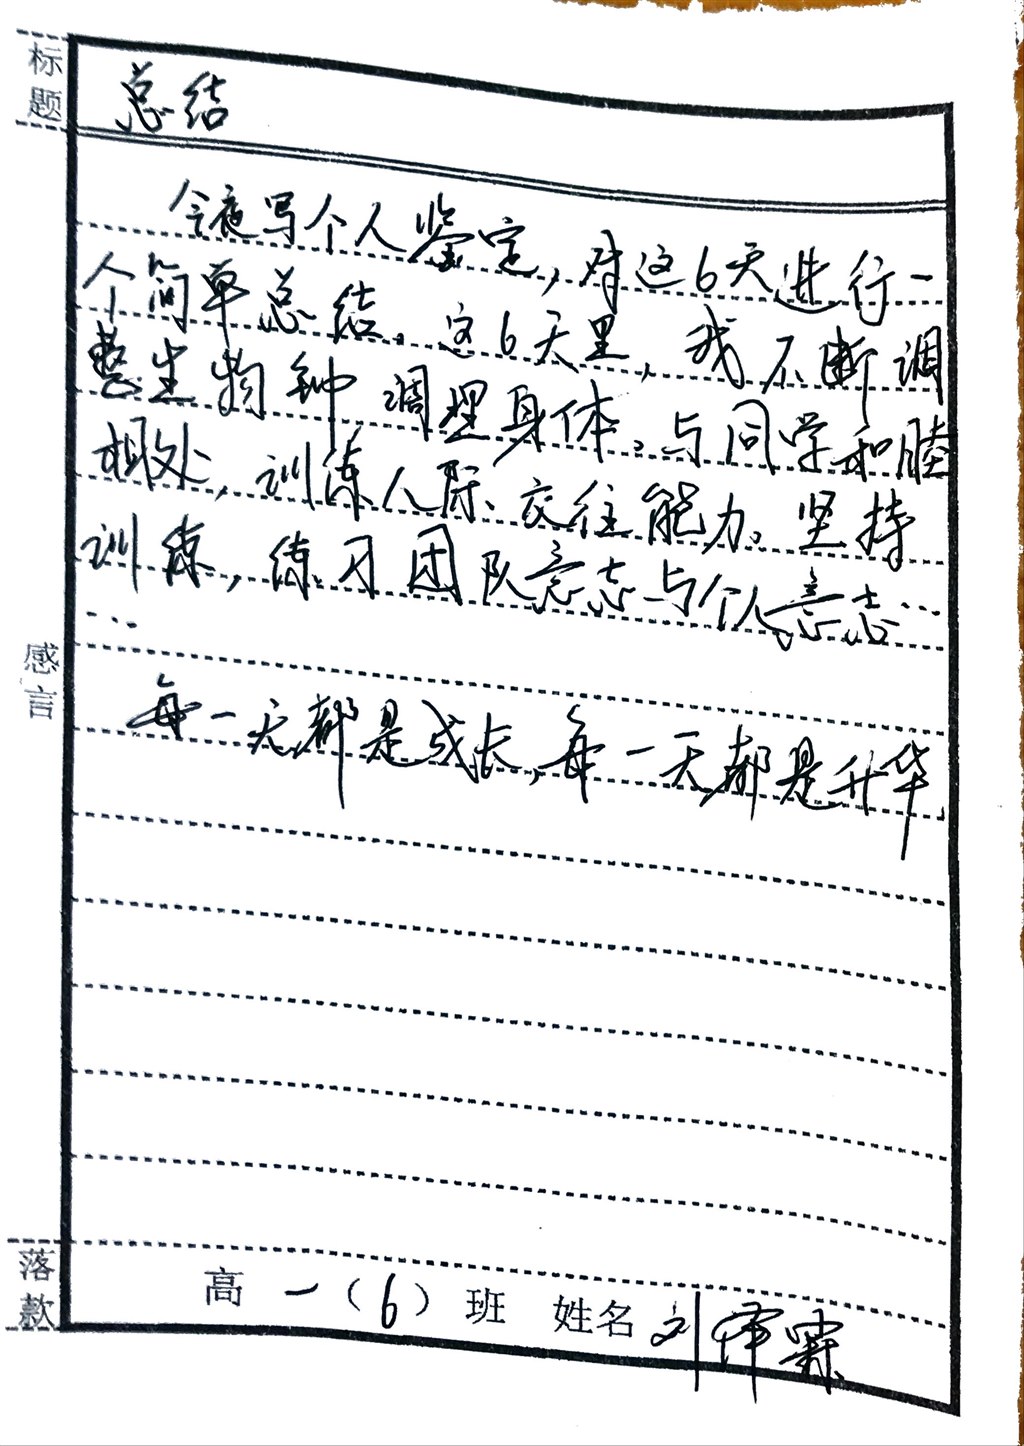 标题
总结
今夜写个人鉴定，对这6天进行一
个简单总结。这6天里，我不断调
整生物钟 调理身体。与同学和睦
相处，训练人际交往能力。坚持
训练，练习团队意志与个人意志…
…
感言
每一天都是成长，每一天都是升华
落款
高一（6）班 姓名 刘泽霖